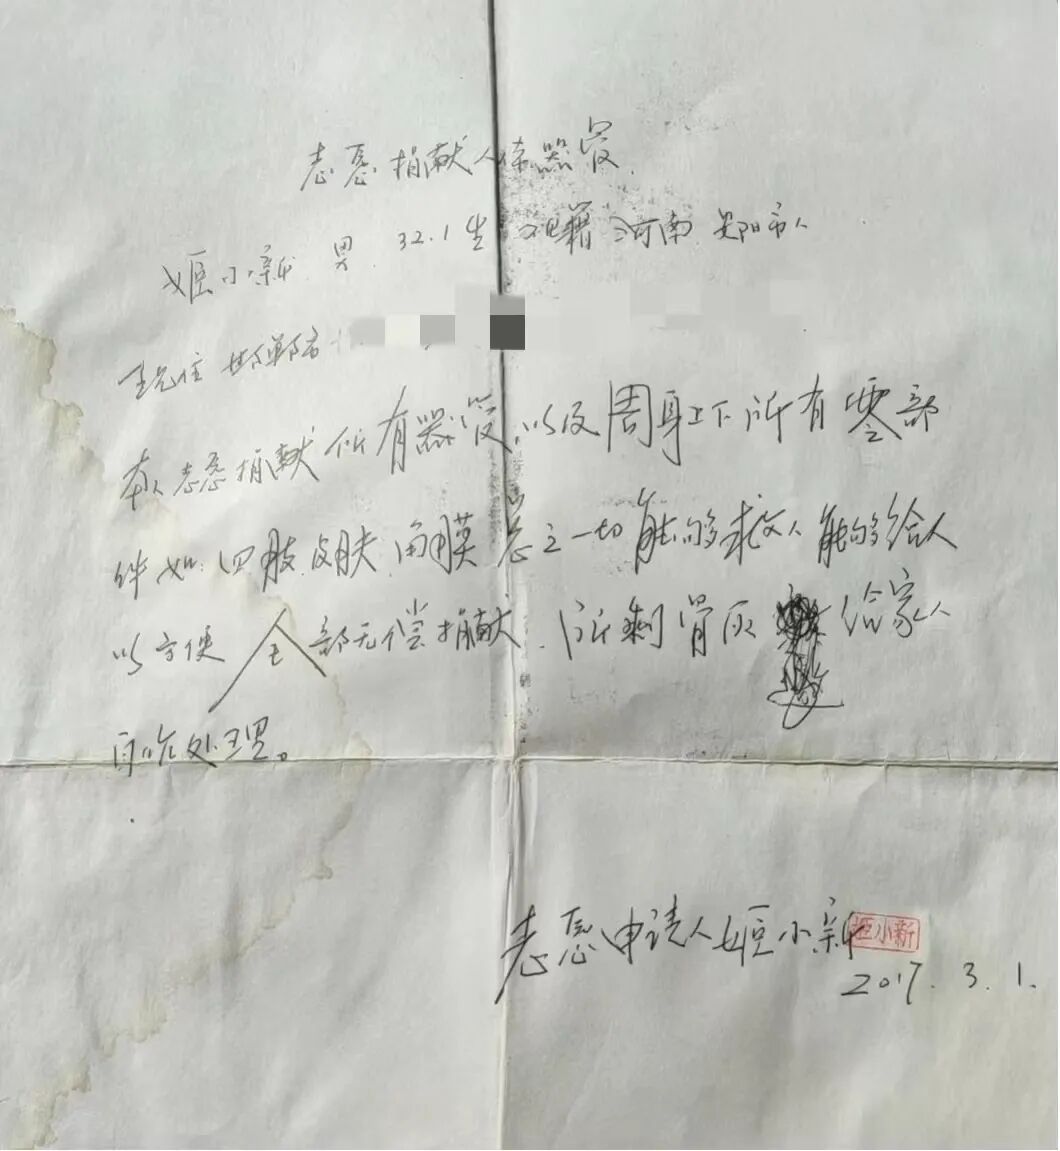 志愿捐献人体器官
姬小新 男 32.1生 祖籍河南 市人
现住邯郸市
本人志愿捐献所有器官,以及周身上下所有零部
件如:四肢、皮肤、角膜总之一切能够救人能够给人
以方便全部无偿捐献.所剩骨灰 给家人
自 处理。
志愿申请人姬小新 姬小新
2017.3.1.